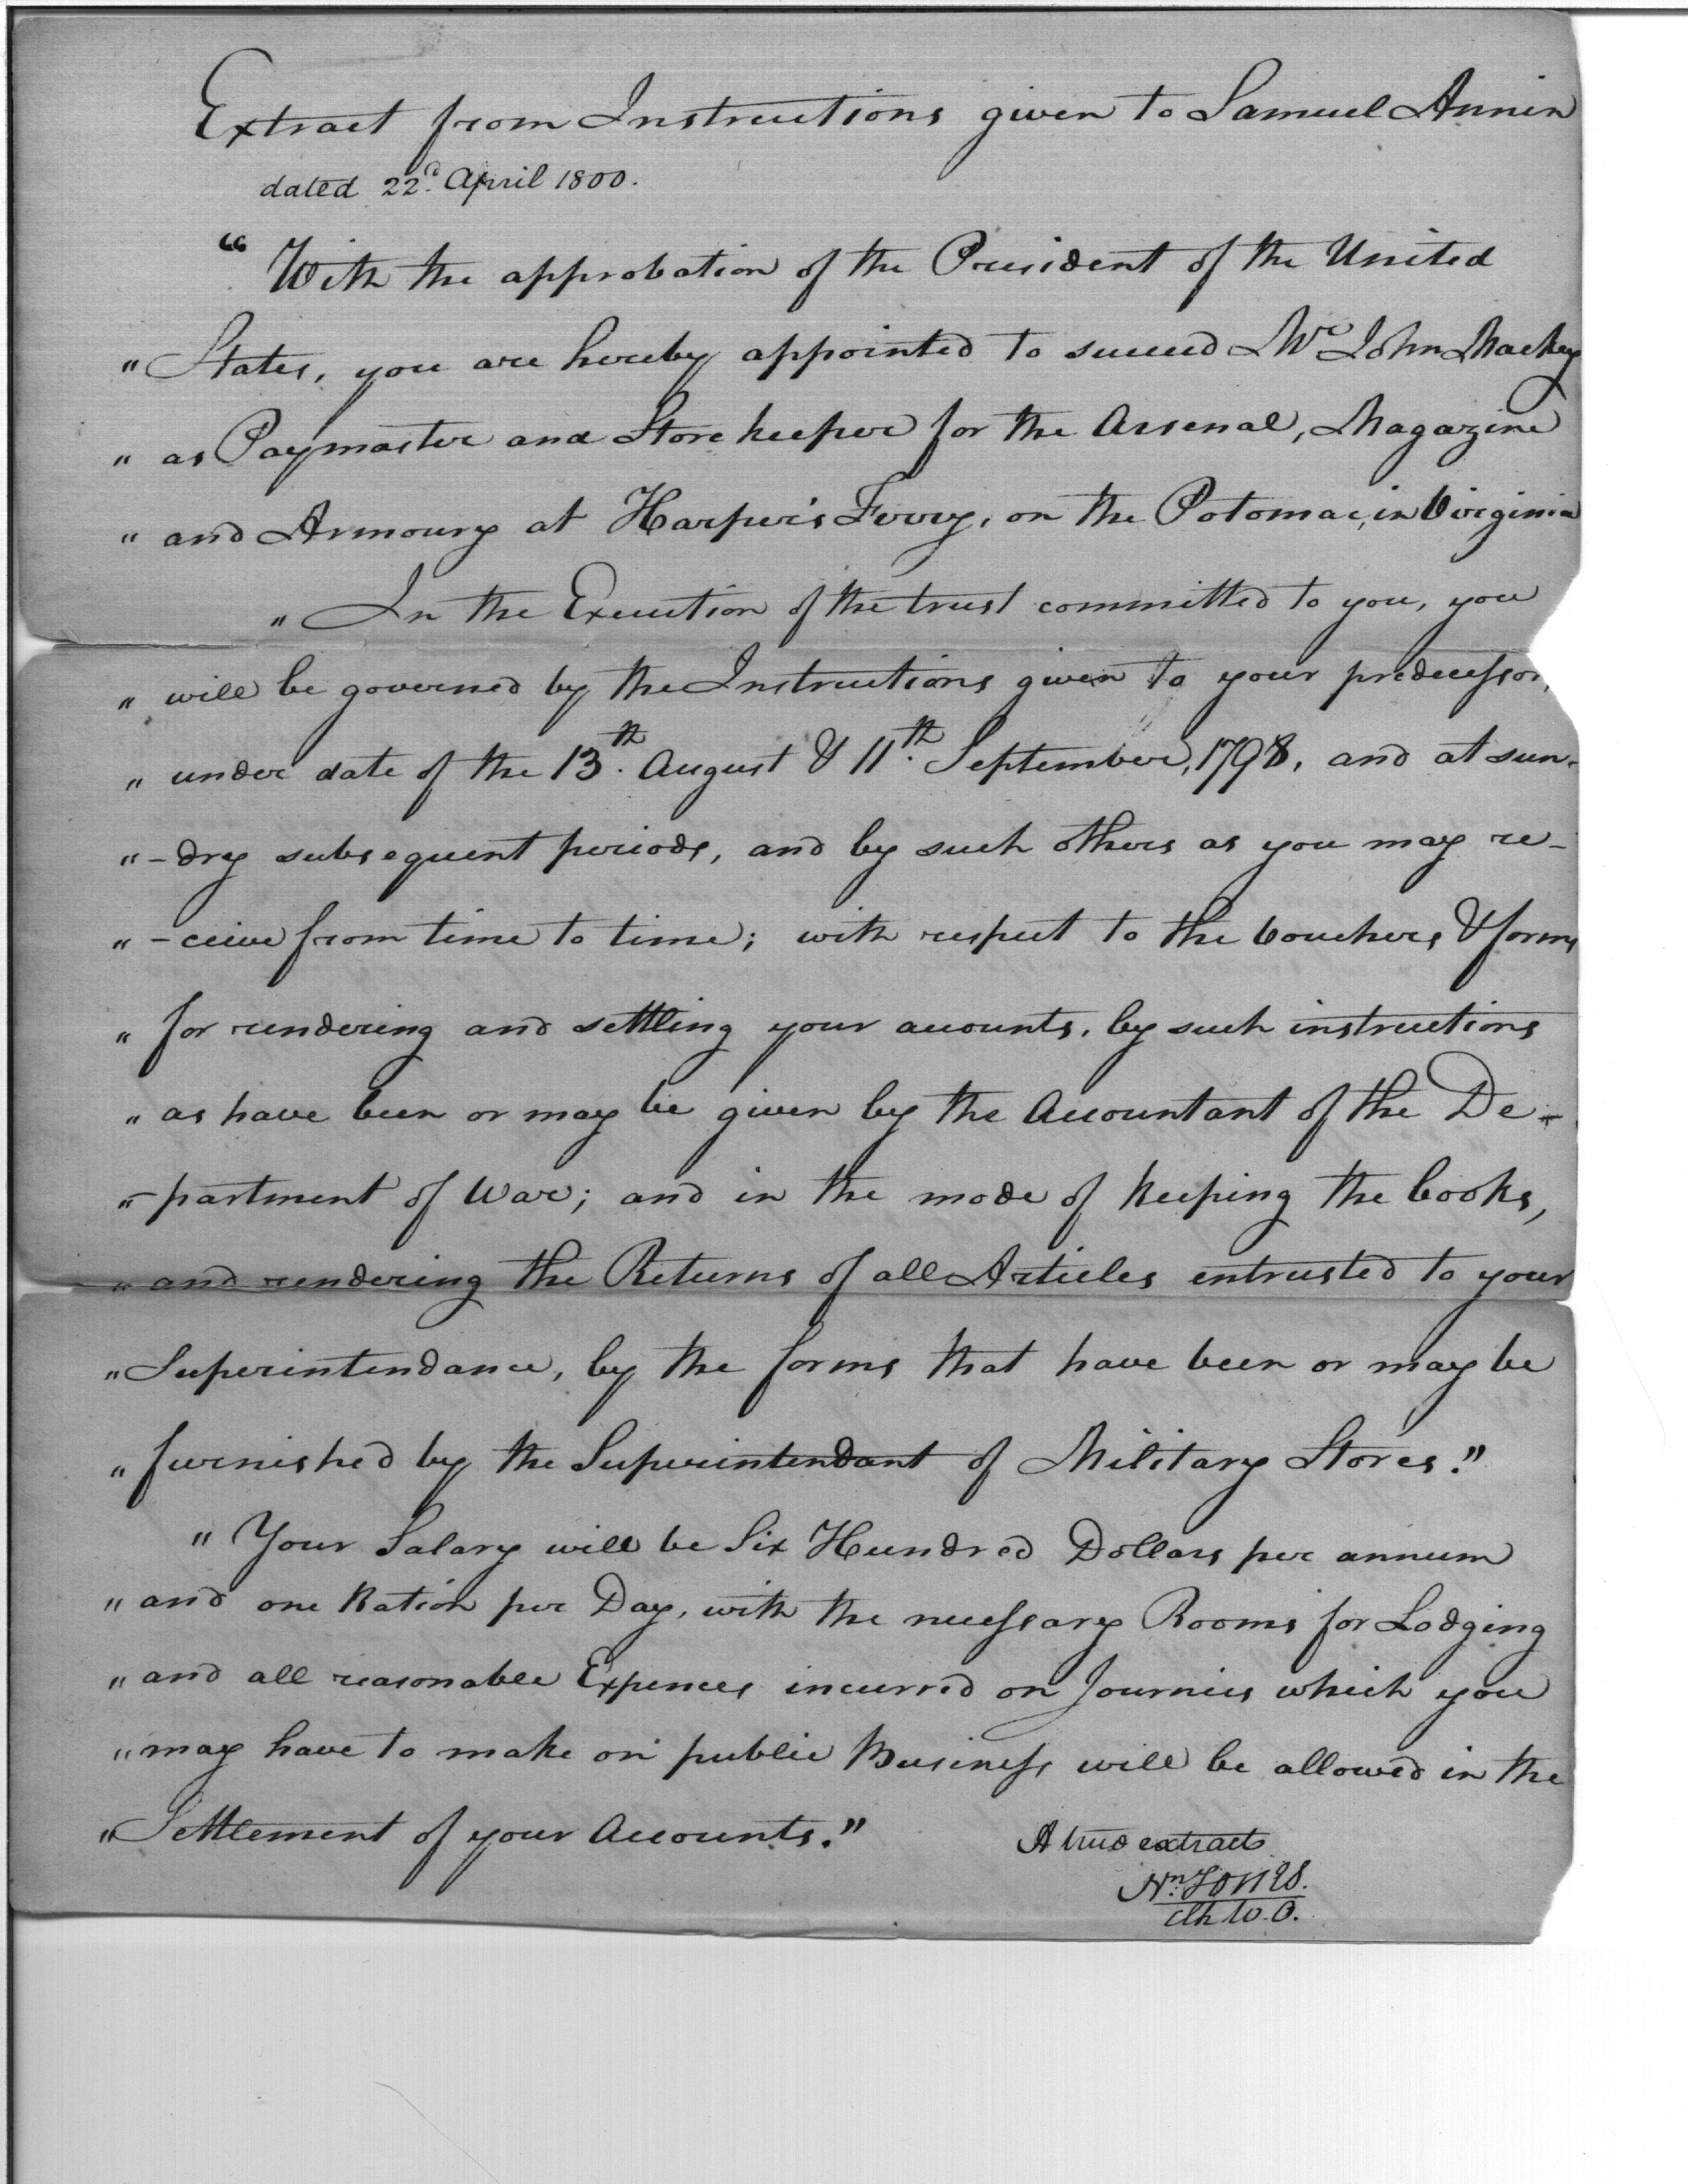 Extract from Instructions given to Samuel Annin
dated 22d. April 1800.
“ With the approbation of the President of the United
" States, you are hereby appointed to succeed Mr John Mackey
" as Paymaster and Store keeper for the Arsenal, Magazine
" and Armoury at Harper's Ferry, on the Potomac, in Virginia
" In the Execution of the trust committed to you, you
" will be governed by the Instructions given to your predecessor,
" under date of the 13th. August & 11th. September, 1798, and at sun-
" -dry subsequent periods, and by such others as you may re-
" -ceive from time to time; with respect to the vouchers & forms
" for rendering and settling your accounts, by such instructions
" as have been or may be given by the Accountant of the De-
" -partment of War; and in the mode of keeping the books,
" and rendering the Returns of all Articles entrusted to your
" Superintendance, by the forms that have been or may be
" furnished by the Superintendant of Military Stores."
" Your Salary will be Six Hundred Dollars per annum
" and one Ration per Day, with the necessary Rooms for Lodging
" and all reasonable Expences incurred on Journies which you
" may have to make on public Business will be allowed in the
" Settlement of your Accounts."
A true extract
Clk W.O.